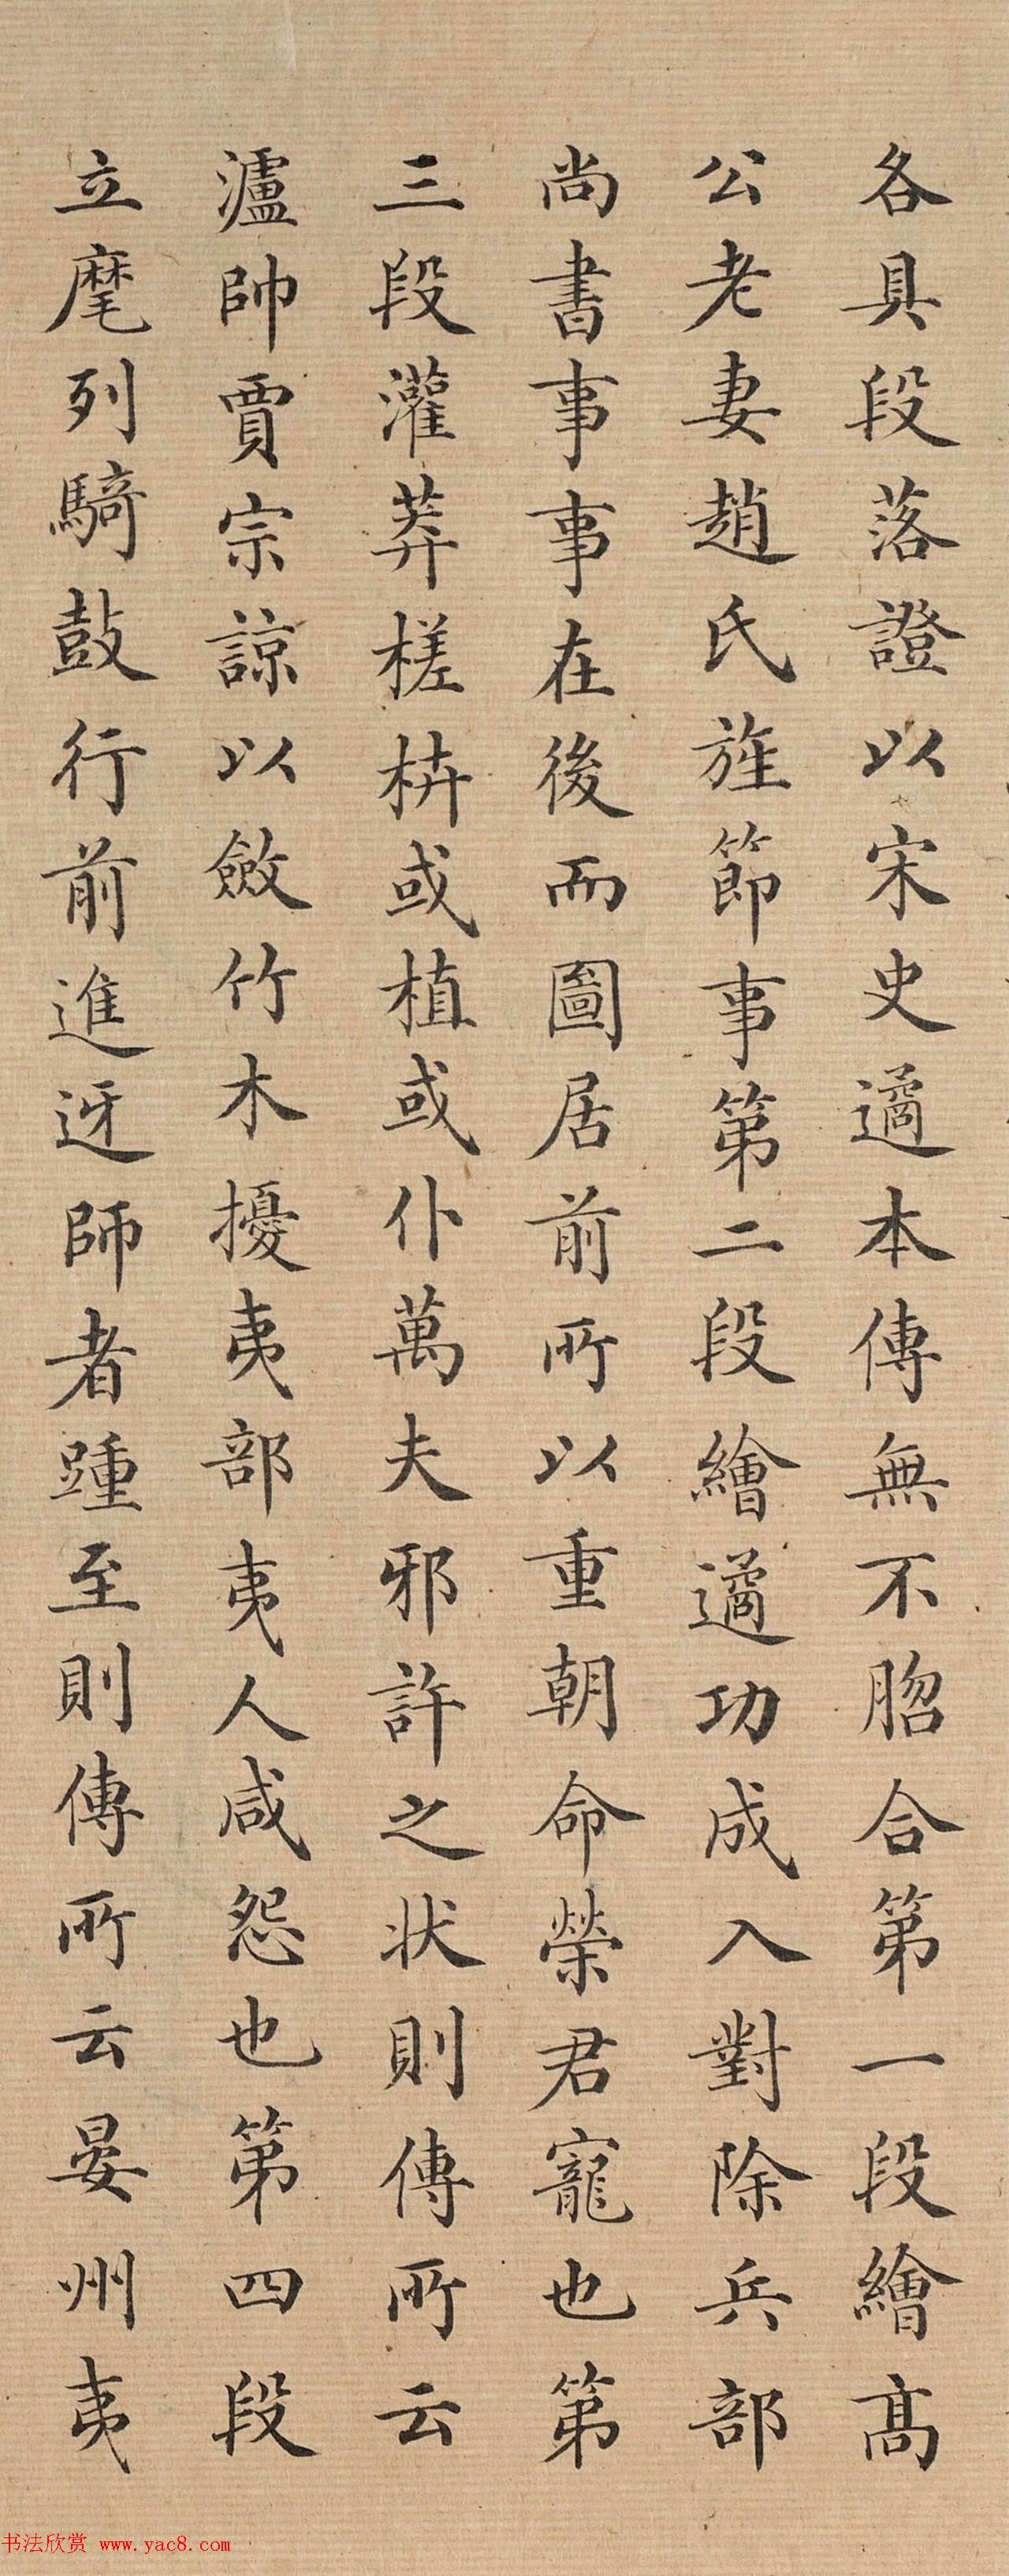 各具段落證以宋史遹本傳無不脗合第一段繪髙
公老妻趙氏旌節事第二段繪遹功成入對除兵部
尚書事事在後而圖居前所以重朝命榮君寵也第
三段灌莽槎枿或植或仆萬夫邪許之状則傳所云
瀘帥賈宗諒以斂竹木擾夷部夷人咸怨也第四段
立麾列騎鼓行前進迓師者踵至則傳所云晏州夷
书法欣赏 www.yac8.com